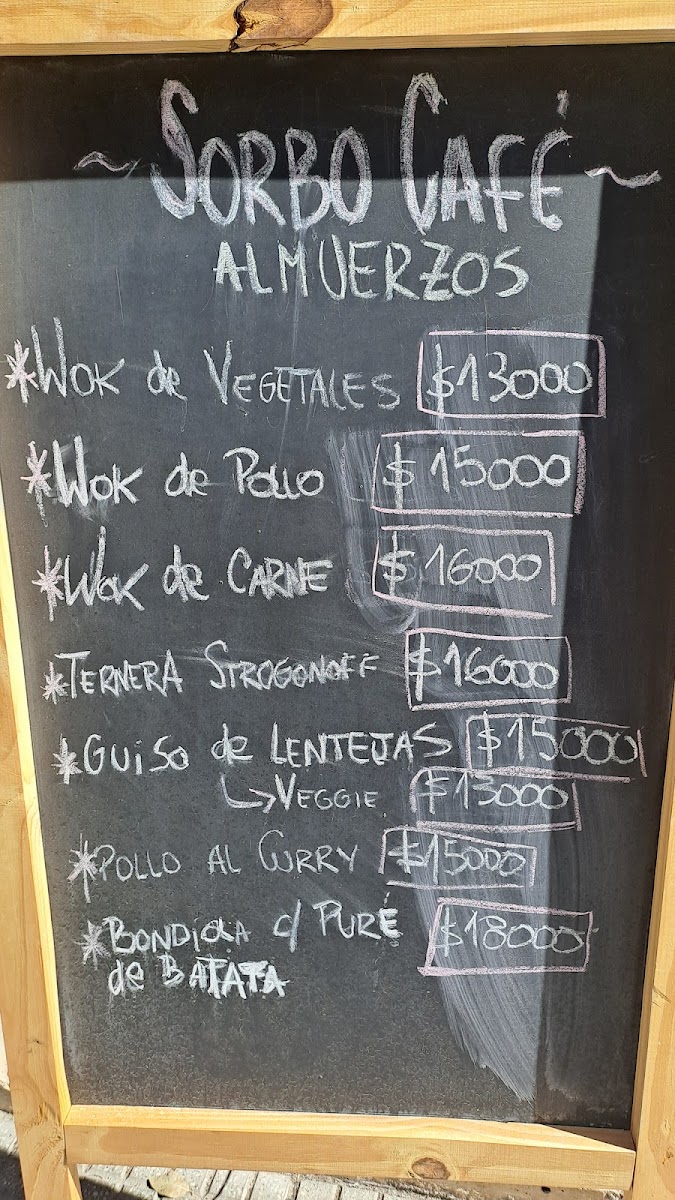 ~ SORBO CAFÉ ~
ALMUERZOS
*WOK de VEGETALES $13000
*WOK de POLLO $15000
*WOK de CARNE $16000
*TERNERA STROGONOFF $16000
*GUISO de LENTEJAS $15000
↳VEGGIE $13000
*POLLO AL CURRY $15000
*BONDIOLA c/ PURÉ $18000
de BATATA